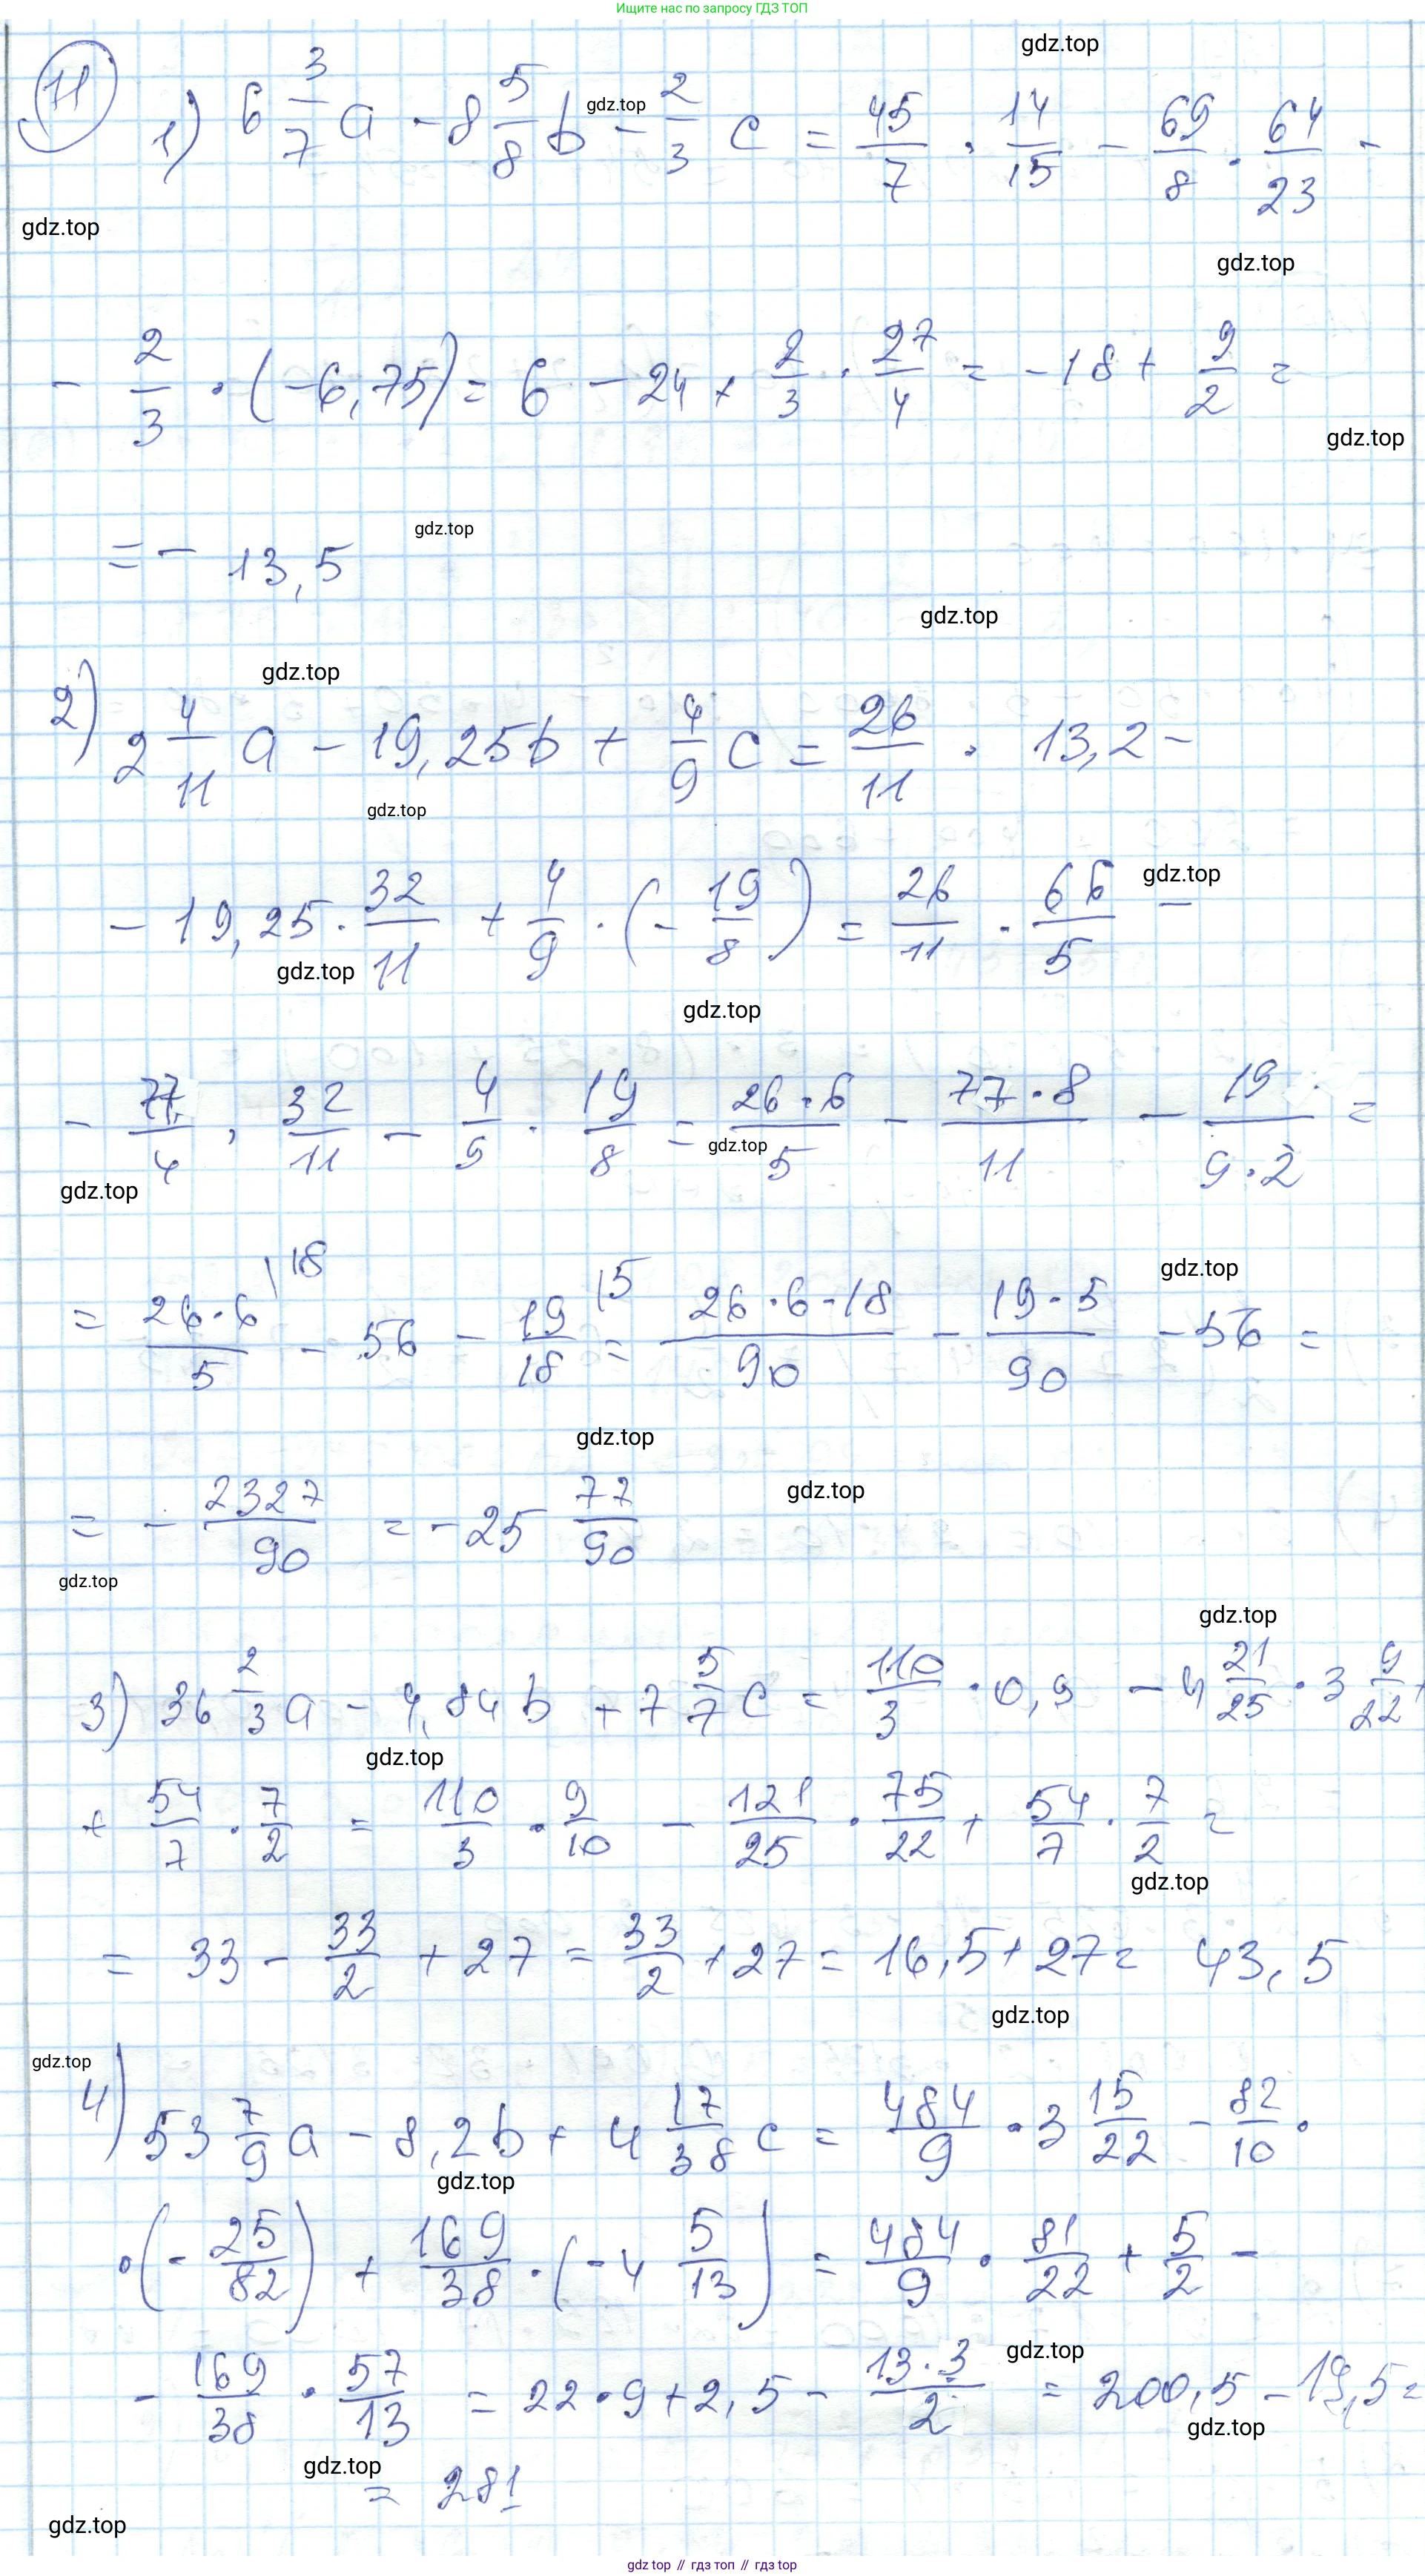 Ищите нас по запросу ГДЗ ТОП
gdz.top
11
1) 6 3/7 a - 8 5/8 b - 2/3 c = 45/7 · 14/15 - 69/8 · 64/23 -
gdz.top
gdz.top
gdz.top
- 2/3 · (-6,75) = 6 - 24 + 2/3 · 27/4 = -18 + 9/2 =
gdz.top
= - 13,5
gdz.top
gdz.top
gdz.top
2) 2 4/11 a - 19,25b + 4/9 c = 26/11 · 13,2 -
gdz.top
- 19,25 · 32/11 + 4/9 · (- 19/8) = 26/11 · 66/5 -
gdz.top
gdz.top
gdz.top
- 77/4 · 32/11 - 4/9 · 19/8 = 26·6/5 - 77·8/11 - 19/9·2 =
gdz.top
gdz.top
= 26·6/5 \18 - 56 - 19/18 \5 = 26·6·18/90 - 19·5/90 - 56 =
gdz.top
gdz.top
= - 2327/90 = -25 77/90
gdz.top
gdz.top
gdz.top
3) 36 2/3 a - 4,84b + 7 5/7 c = 110/3 · 0,9 - 4 21/25 · 3 9/22 +
gdz.top
+ 54/7 · 7/2 = 110/3 · 9/10 - 121/25 · 75/22 + 54/7 · 7/2 =
gdz.top
= 33 - 33/2 + 27 = 33/2 + 27 = 16,5 + 27 = 43,5
gdz.top
gdz.top
4) 53 7/9 a - 8,2b + 4 17/38 c = 484/9 · 3 15/22 - 82/10 ·
gdz.top
· (- 25/82) + 169/38 · (-4 5/13) = 484/9 · 81/22 + 5/2 -
gdz.top
- 169/38 · 57/13 = 22·9 + 2,5 - 13·3/2 = 200,5 - 19,5 =
gdz.top
gdz.top
= 281
gdz.top
gdz.top // гдз топ // гдз top